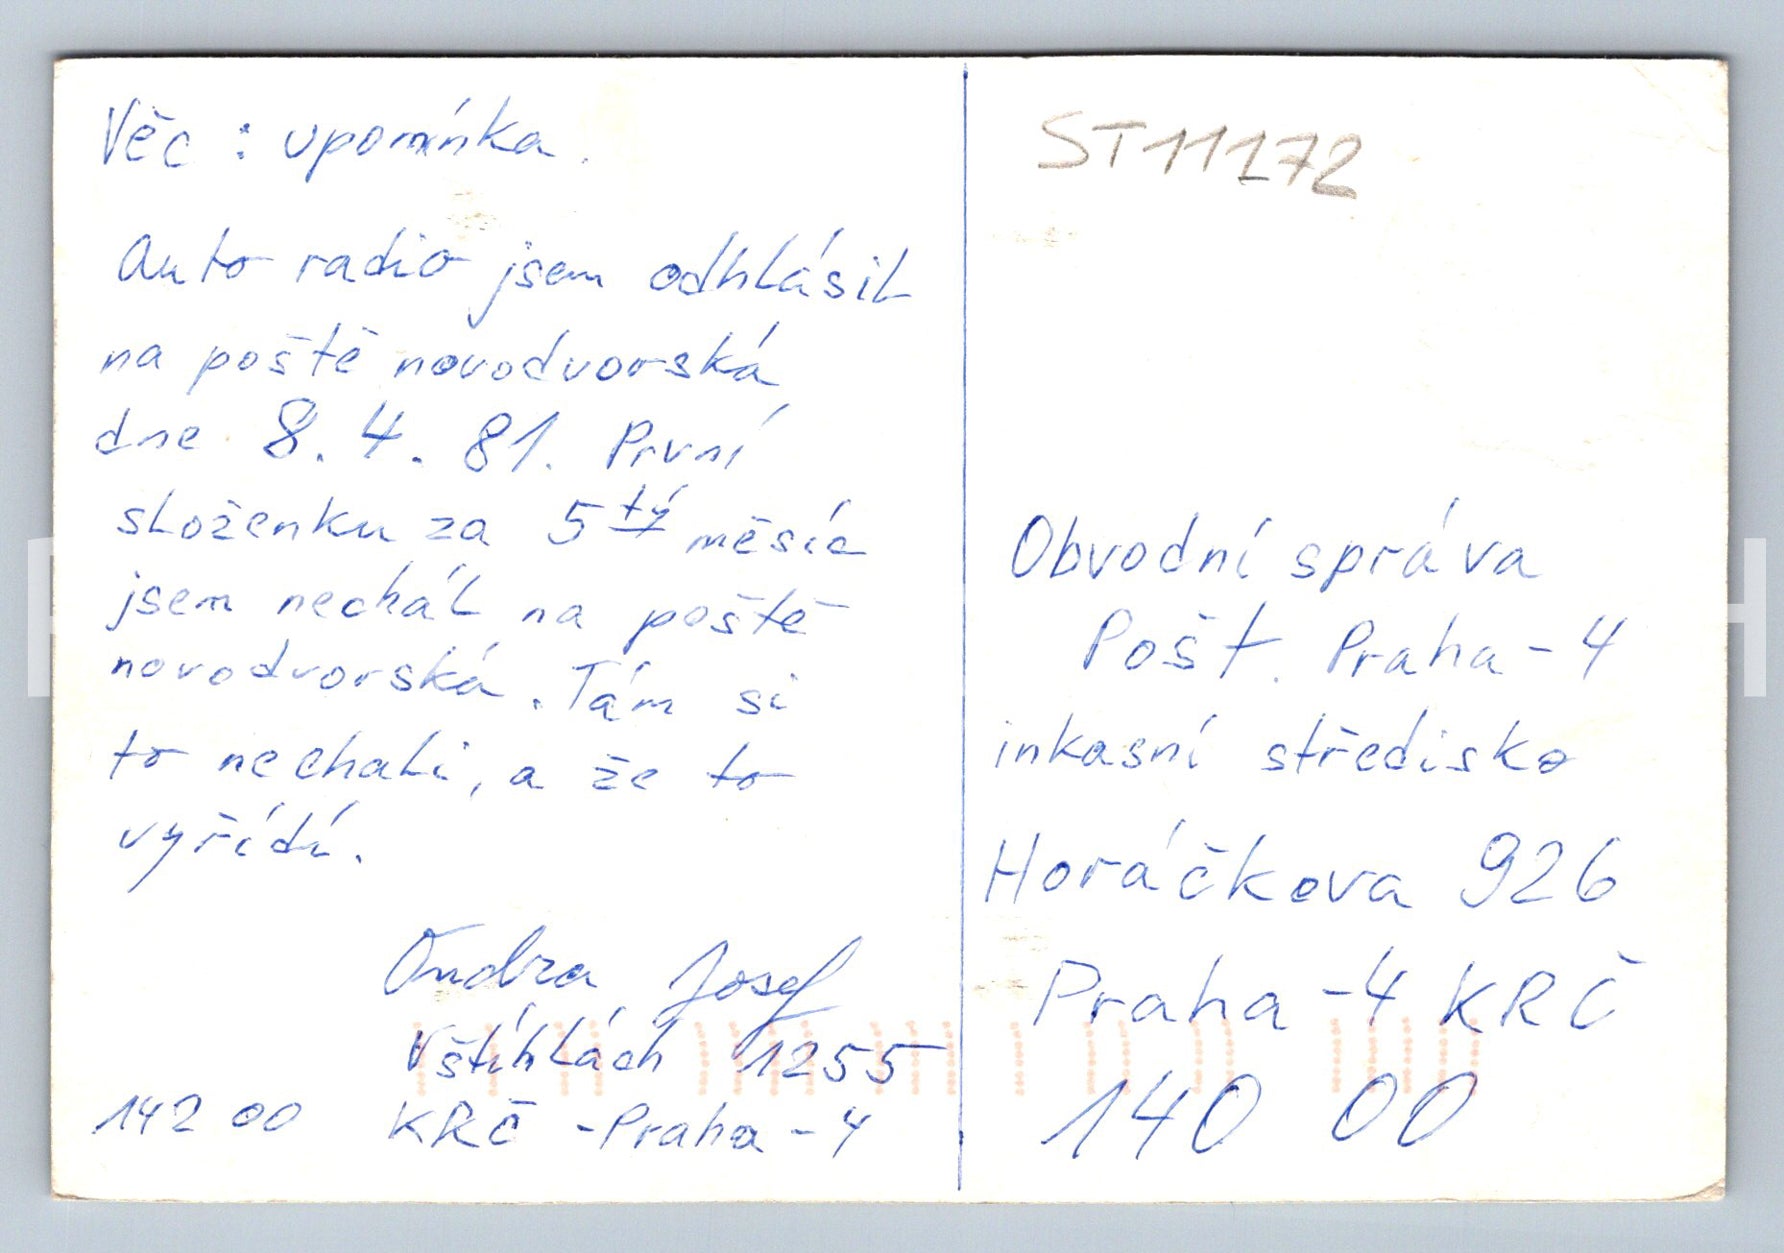 Věc : upomínka.
Auto radio jsem odhlásil
na poště novodvorská
dne 8.4.81. První
složenku za 5tý měsíc
jsem nechál na poště
novodvorská. Tám si
to nechali, a že to
vyřídí.
Ondra Josef
Vštíhlách 1255
142 00 KRČ - Praha - 4
ST11172
Obvodní správa
Pošt. Praha - 4
inkasní středisko
Horáčkova 926
Praha - 4 KRČ
140 00